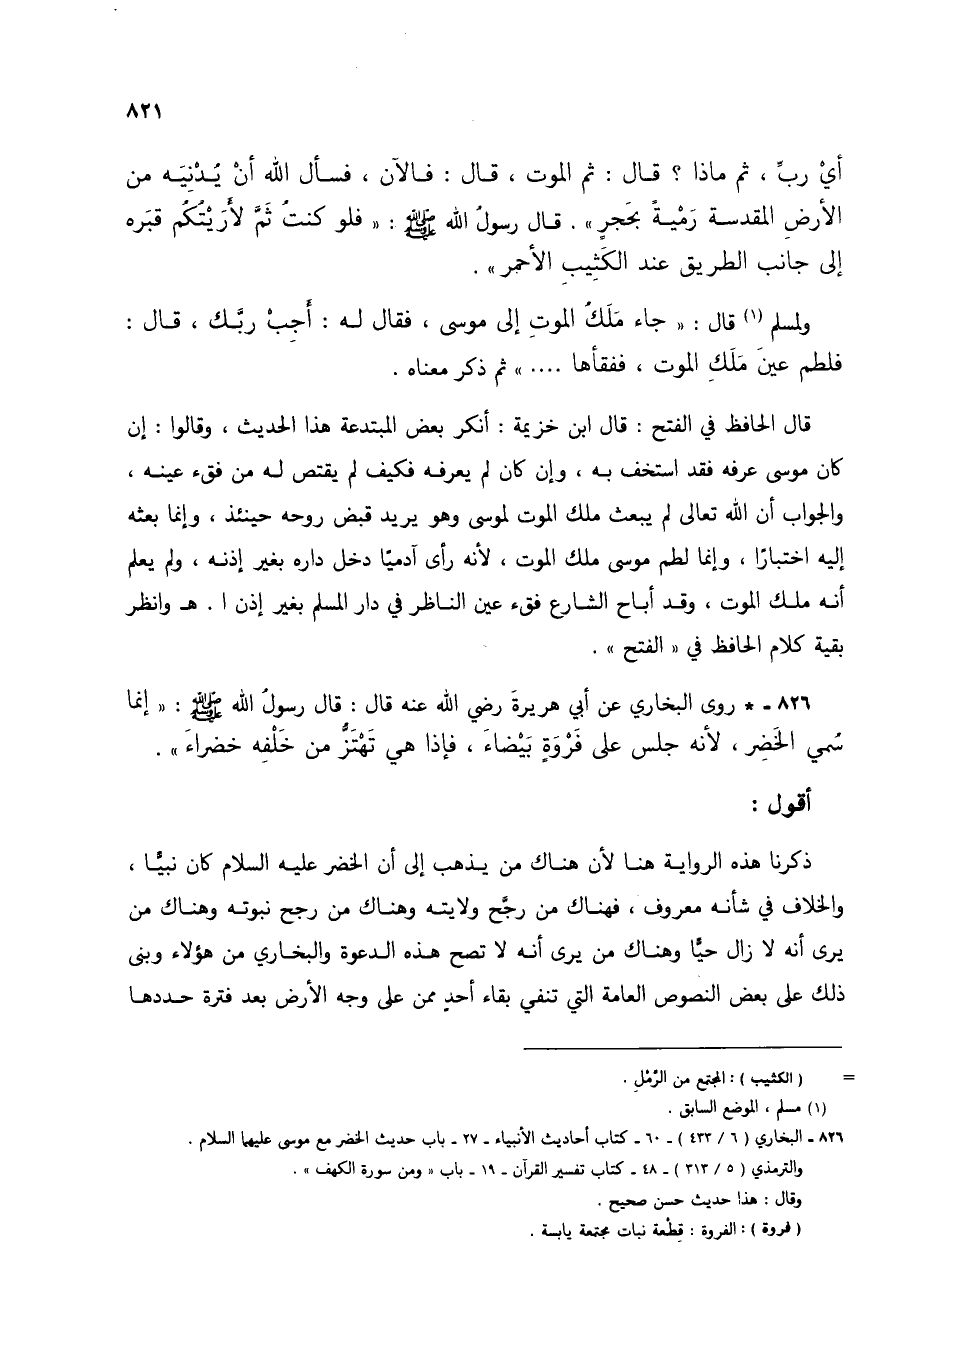 ٨٢١
أيْ ربِّ ، ثم ماذا ؟ قـال : ثم الموت ، قـال : فـالآن ، فسـأل الله أنْ يُـدْنِيَـه من
الأرضِ المقدسـة رَمْيـةً بحَجرٍ » . قـال رسولُ الله ﷺ : « فلو كنتُ ثَمَّ لأَرَيْتُكُم قبَره
إلى جانب الطريق عند الكَثِيبِ الأحمر » .
ولمسلم (١) قال : « جاء مَلَكُ الموتِ إلى موسى ، فقال لـه : أَجِبْ ربَّـك ، قـال :
فلطم عينَ مَلَكِ الموت ، ففقأها .... » ثم ذكر معناه .
قال الحافظ في الفتح : قال ابن خزيمة : أنكر بعض المبتدعة هذا الحديث ، وقالوا : إن
كان موسى عرفه فقد استخف بـه ، وإن كان لم يعرفـه فكيف لم يقتص لـه من فقء عينـه ،
والجواب أن الله تعالى لم يبعث ملك الموت لموسى وهو يريد قبض روحه حينئذ ، وإنما بعثه
إليه اختبارًا ، وإنما لطم موسى ملك الموت ، لأنه رأى آدميًا دخل داره بغير إذنـه ، ولم يعلم
أنـه ملـك الموت ، وقـد أبـاح الشـارع فقء عين النـاظر في دار المسلم بغير إذن ا . هـ وانظر
بقية كلام الحافظ في « الفتح » .
٨٢٦ ـ * روى البخاري عن أبي هريرةَ رضي الله عنه قال : قال رسولُ الله ﷺ : « إنما
سُمي الخَضِر ، لأنه جلس على فَرْوَةٍ بَيْضاءَ ، فإذا هي تَهْتَزُّ من خَلْفِه خضراءَ » .
أقول :
ذكرنا هذه الروايـة هنـا لأن هنـاك من يـذهب إلى أن الخضر عليـه السلام كان نبيًّـا ،
والخلاف في شأنـه معروف ، فهنـاك من رجَّح ولايتـه وهنـاك من رجح نبوتـه وهنـاك من
يرى أنه لا زال حيًّا وهنـاك من يرى أنـه لا تصح هـذه الـدعوة والبخـاري من هؤلاء وبنى
ذلك على بعض النصوص العامة التي تنفي بقاء أحدٍ ممن على وجه الأرض بعد فترة حـددهـا
= ( الكثيب ) : المجتمع من الرَّمْلِ .
(١) مسلم ، الموضع السابق .
٨٢٦ ـ البخاري ( ٦ / ٤٣٣ ) ـ ٦٠ ـ كتاب أحاديث الأنبياء ـ ٢٧ ـ باب حديث الخضر مع موسى عليهما السلام .
والترمذي ( ٥ / ٣١٣ ) ـ ٤٨ ـ كتاب تفسير القرآن ـ ١٩ ـ باب « ومن سورة الكهف » .
وقال : هذا حديث حسن صحيح .
( فروة ) : الفروة : قِطْعة نبات مجتمعة يابسة .